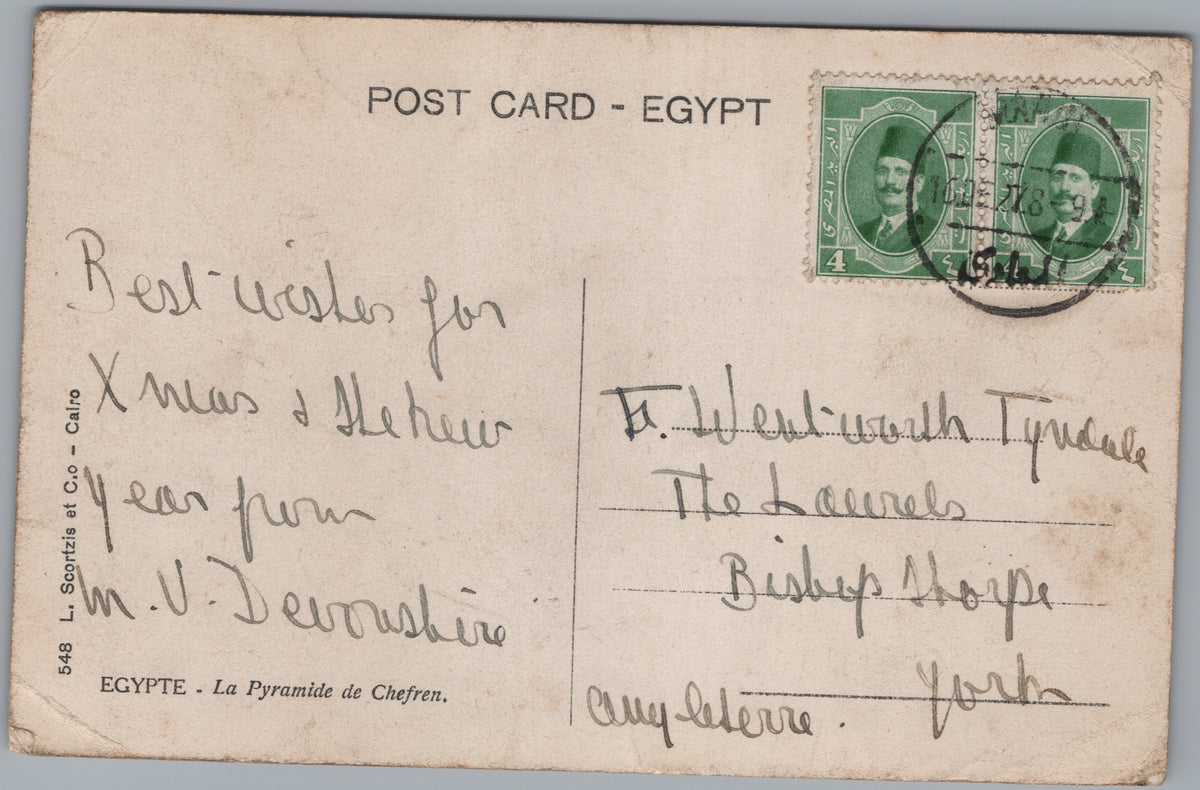 POST CARD - EGYPT
البريد المصري
4
٤
16 DE 27. 8-9
Best wishes for
Xmas & the new
year from
M. V. Devonshire
F. Wentworth Tyndale
The Laurels
Bishop Thorpe
York
Angleterre.
548 L. Scortzis et C.o - Cairo
EGYPTE - La Pyramide de Chefren.